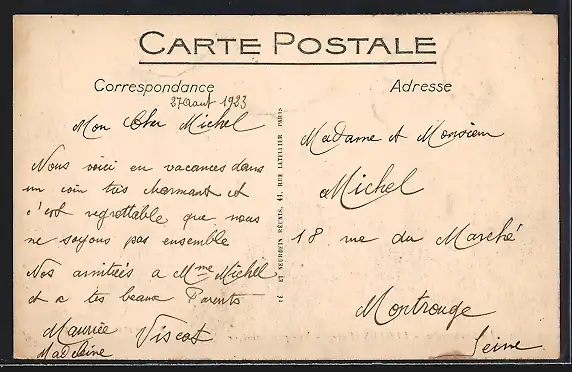 CARTE POSTALE
Correspondance
27 Aout 1923
Mon Cher Michel
Nous voici en vacances dans
un coin très charmant et
c'est regrettable que nous
ne soyons pas ensemble
Nos amitiées a Mme Michel
et a tes beaux Parents
Maurice
Madeleine
Viscat
ET NEURDEIN RÉUNIS, 44, RUE LETELLIER PARIS
Adresse
Madame et Monsieur
Michel
18 rue du Marché
Montrouge
Seine